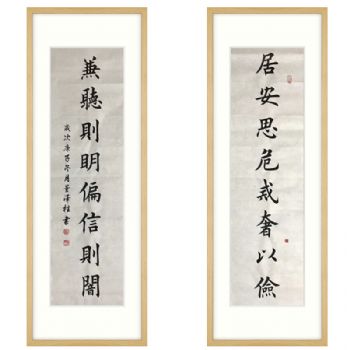 居安思危戒奢以儉
兼聽則明偏信則闇
歲次庚子冬月董漢桂書